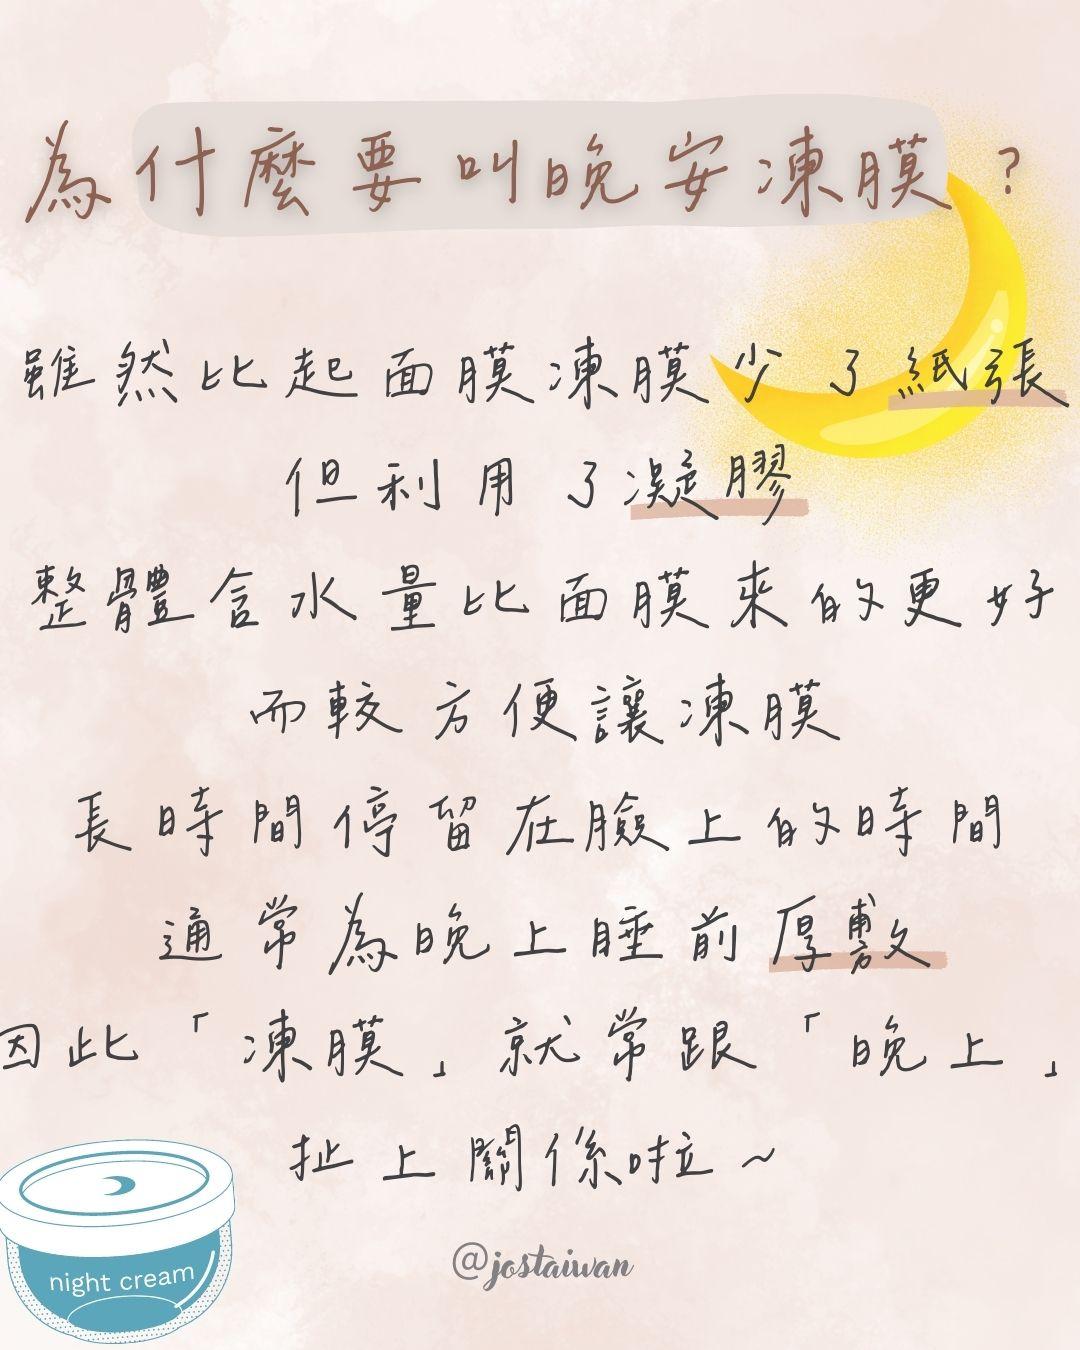 為什麼要叫晚安凍膜?
雖然比起面膜凍膜少了紙張
但利用了凝膠
整體含水量比面膜來的更好
而較方便讓凍膜
長時間停留在臉上的時間
通常為晚上睡前厚敷
因此「凍膜」就常跟「晚上」
扯上關係啦~
night cream
@jostaiwan